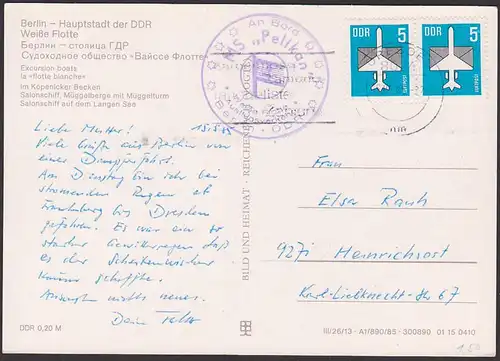 Berlin – Hauptstadt der DDR
Weiße Flotte
Берлин – столица ГДР
Судоходное общество «Вайссе Флотте»
Excursion boats
la «flotte blanche»
im Köpenicker Becken
Salonschiff, Müggelberge mit Müggelturm
Salonschiff auf dem Langen See
An Bord
MS „Pelikan"
Berlin
DDR 5
DDR 5
Luftpost
Luftpost
Liebe Mutter! 15.5.85
Viele Grüße aus Berlin von
einer Dampferfahrt.
Am Dienstag bin ich bei
strömenden Regen ab
bis Dresden
gefahren. Es war ein so
starker Gewitterregen daß
es der Scheibenwischer
kaum schaffte.
Ansonsten nichts neues.
Deine
BILD UND HEIMAT · REICHENB
Frau
Elser Rauh
9271 Heinrichsort
Karl-Liebknecht-Str 67
DDR 0,20 M
III/26/13 · A1/890/85 · 300890 01 15 0410
1.50